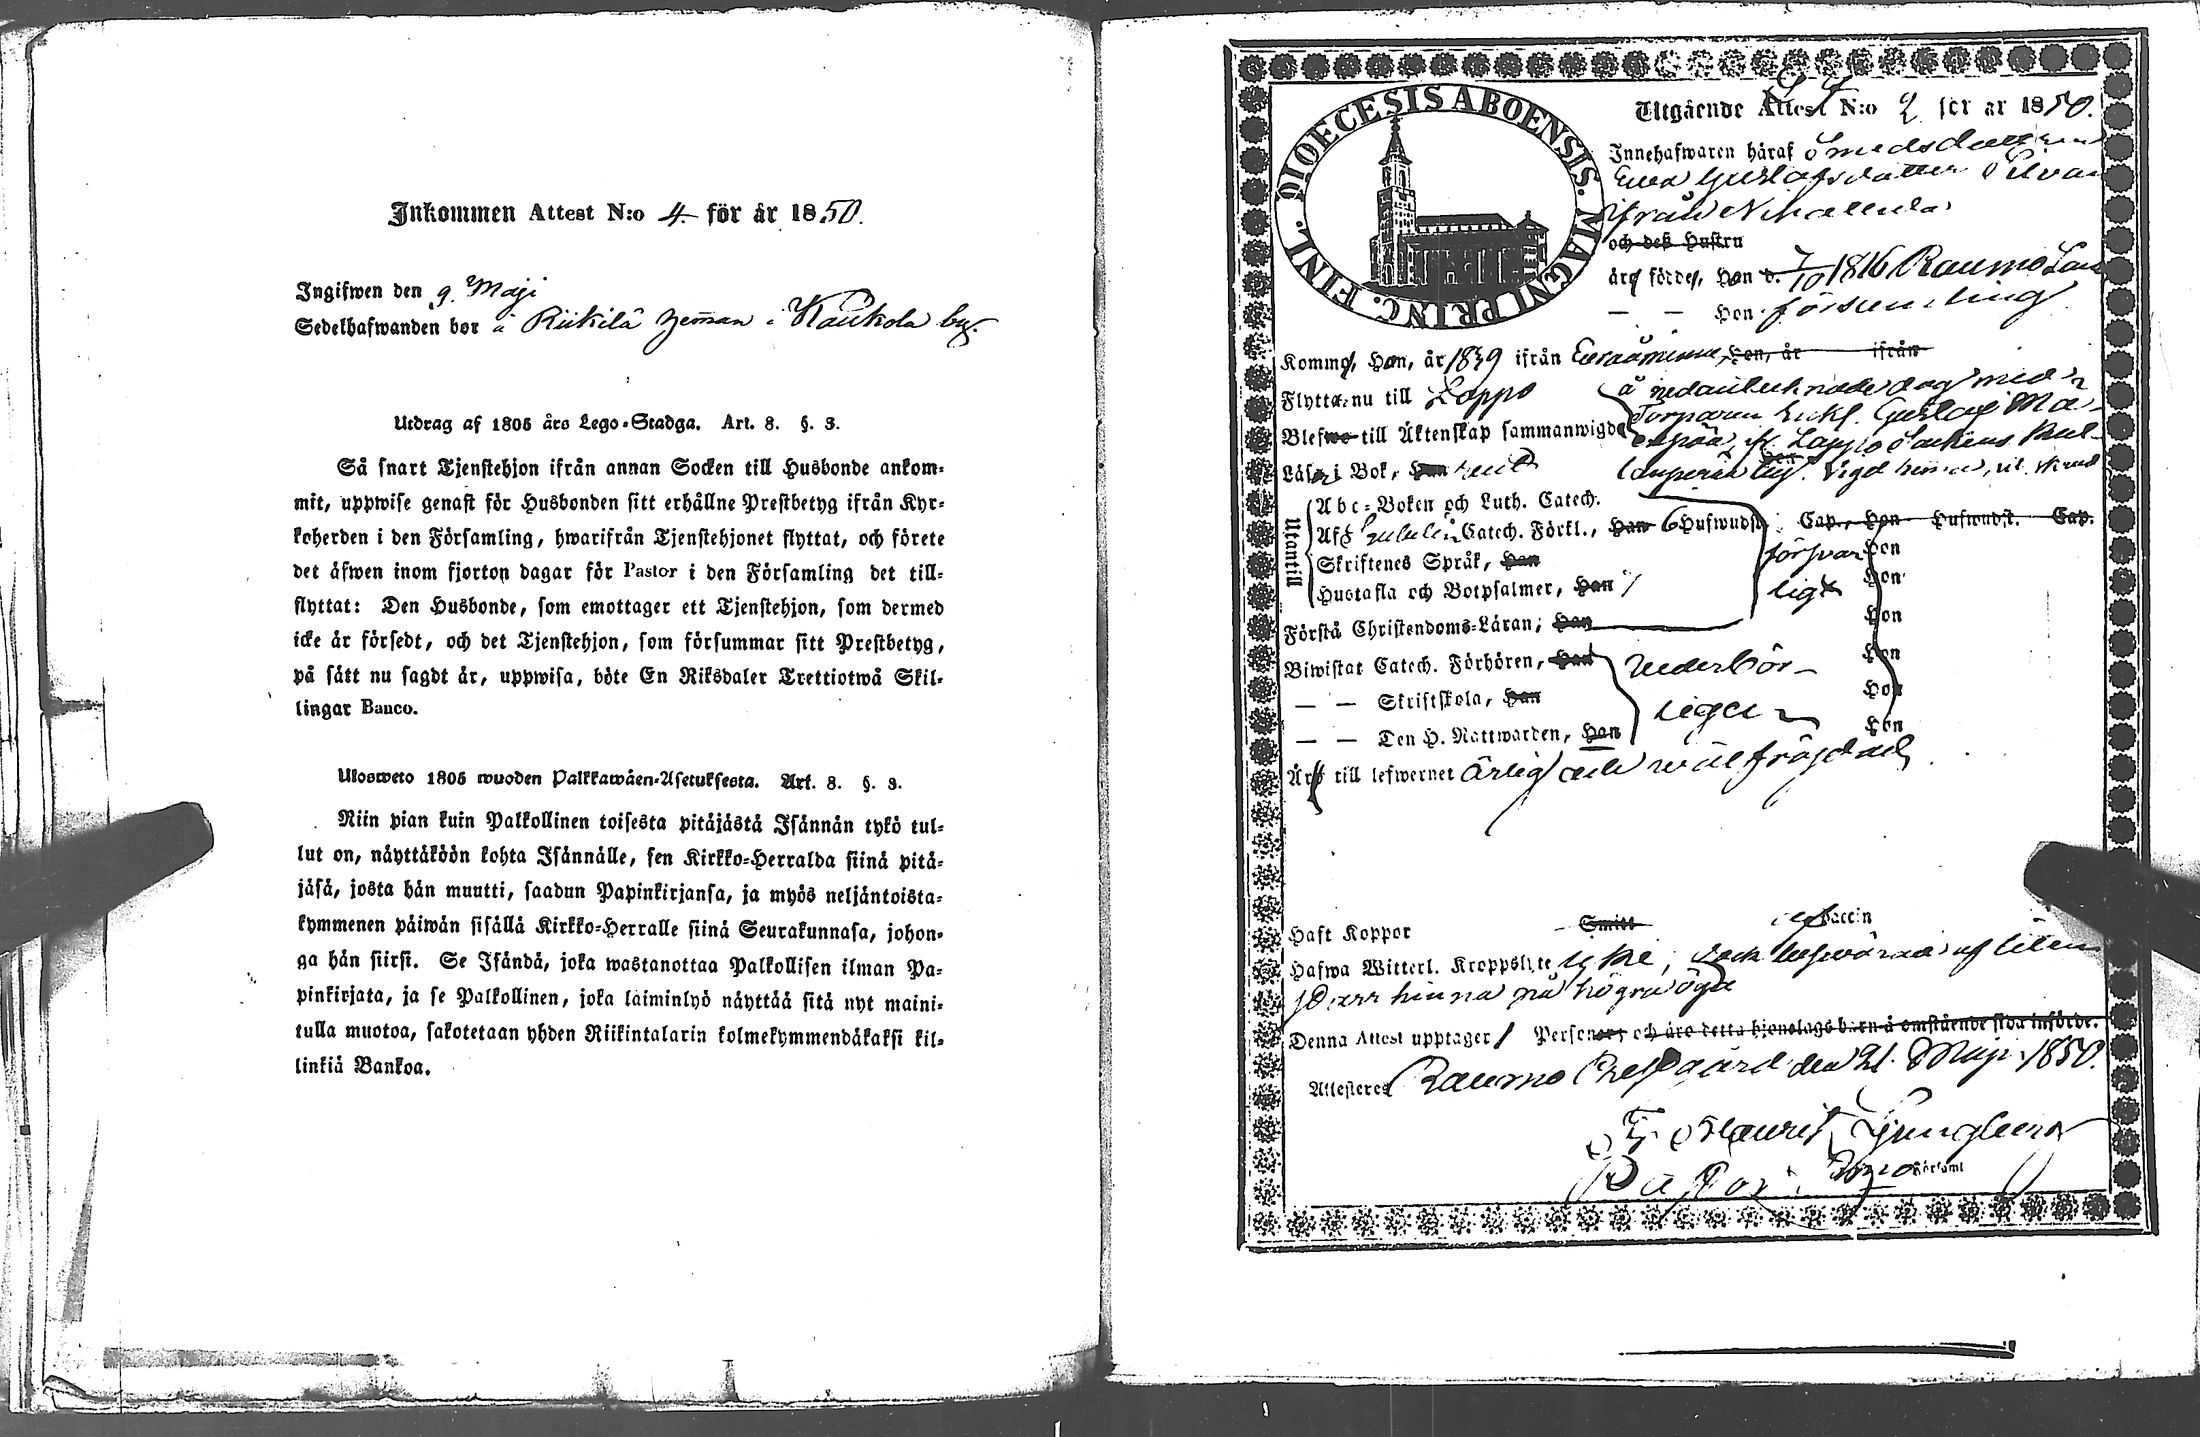 Inkommen Attest N:o 4 för år 1850.
Ingifwen den 9. Maji
Sedelhafwanden bor å Riikilä hemman i Kaukola by.
Utdrag af 1805 års Lego-Stadga. Art. 8. §. 3.
Så snart Tjenstehjon ifrån annan Socken till Husbonde ankom-
mit, uppwise genast för Husbonden sitt erhållne Prestbetyg ifrån Kyr-
koherden i den Församling, hwarifrån Tjenstehjonet flyttat, och förete
det äfwen inom fjorton dagar för Pastor i den Församling det till-
flyttat: Den Husbonde, som emottager ett Tjenstehjon, som dermed
icke är försedt, och det Tjenstehjon, som försummar sitt Prestbetyg,
på sätt nu sagdt är, uppwisa, böte En Riksdaler Trettiotwå Skil-
lingar Banco.
Ulosweto 1805 wuoden Palkkawäen-Asetuksesta. Art. 8. §. 3.
Niin pian kuin Palkollinen toisesta pitäjästä Isännän tykö tul-
lut on, näyttäköön kohta Isännälle, sen Kirkko-Herralda siinä pitä-
jäsä, josta hän muutti, saadun Papinkirjansa, ja myös neljäntoista-
kymmenen päiwän sisällä Kirkko-Herralle siinä Seurakunnasa, johon-
ga hän siirsi. Se Isändä, joka wastanottaa Palkollisen ilman Pa-
pinkirjata, ja se Palkollinen, joka laiminlyö näyttää sitä nyt maini-
tulla muotoa, sakotetaan yhden Riikintalarin kolmekymmendäkaksi kil-
linkiä Bankoa.
DIOECESIS ABOENSIS. MAGNI PRINC. FINL.
Utgående Attest N:o 2 för år 1850.
Innehafwaren häraf Smedsdottren
Ewa Gustafsdotter
ifrån
och deß Hustru
äro födde, Han d. 7/10 1816 Raumo Lands
— — Hon församling
Komme, Han, år 1839 ifrån Euraåminne, Hon, år ifrån
Flytta nu till Loppo å nedantecknade dag med
Blefwo till Äktenskap sammanwigde Torparen Enkl. Gustaf
Läsa i Bok, Han rent by. Wigd
Utantill
Abc-Boken och Luth. Catech.
Af Catech. Förkl., Han 6 Hufwudst. Cap., Hon Hufwudst. Cap.
Skriftenes Språk, Han försvar Hon
Hustafla och Botpsalmer, Han ligt Hon
Förstå Christendoms-Läran; Han Hon
Biwistat Catech. Förhören, Han wederbör- Hon
— — Skriftskola, Han ligen Hon
— — Den H. Nattwarden, Han Hon
Äro till lefwernet ärlig och wälfräjdad
Haft Koppor Smitt Vaccin
Hafwa Witterl. Kroppslyte icke, dock beswärad af liten
starr hinna på högra öga
Denna Attest upptager 1 Personer, och äro detta hjonelags barn å omstående sida införde.
Attesteres Raumo Prestgård den 21. Maji 1850.
Maurit Ljungberg
Pastor i Raumo Församl